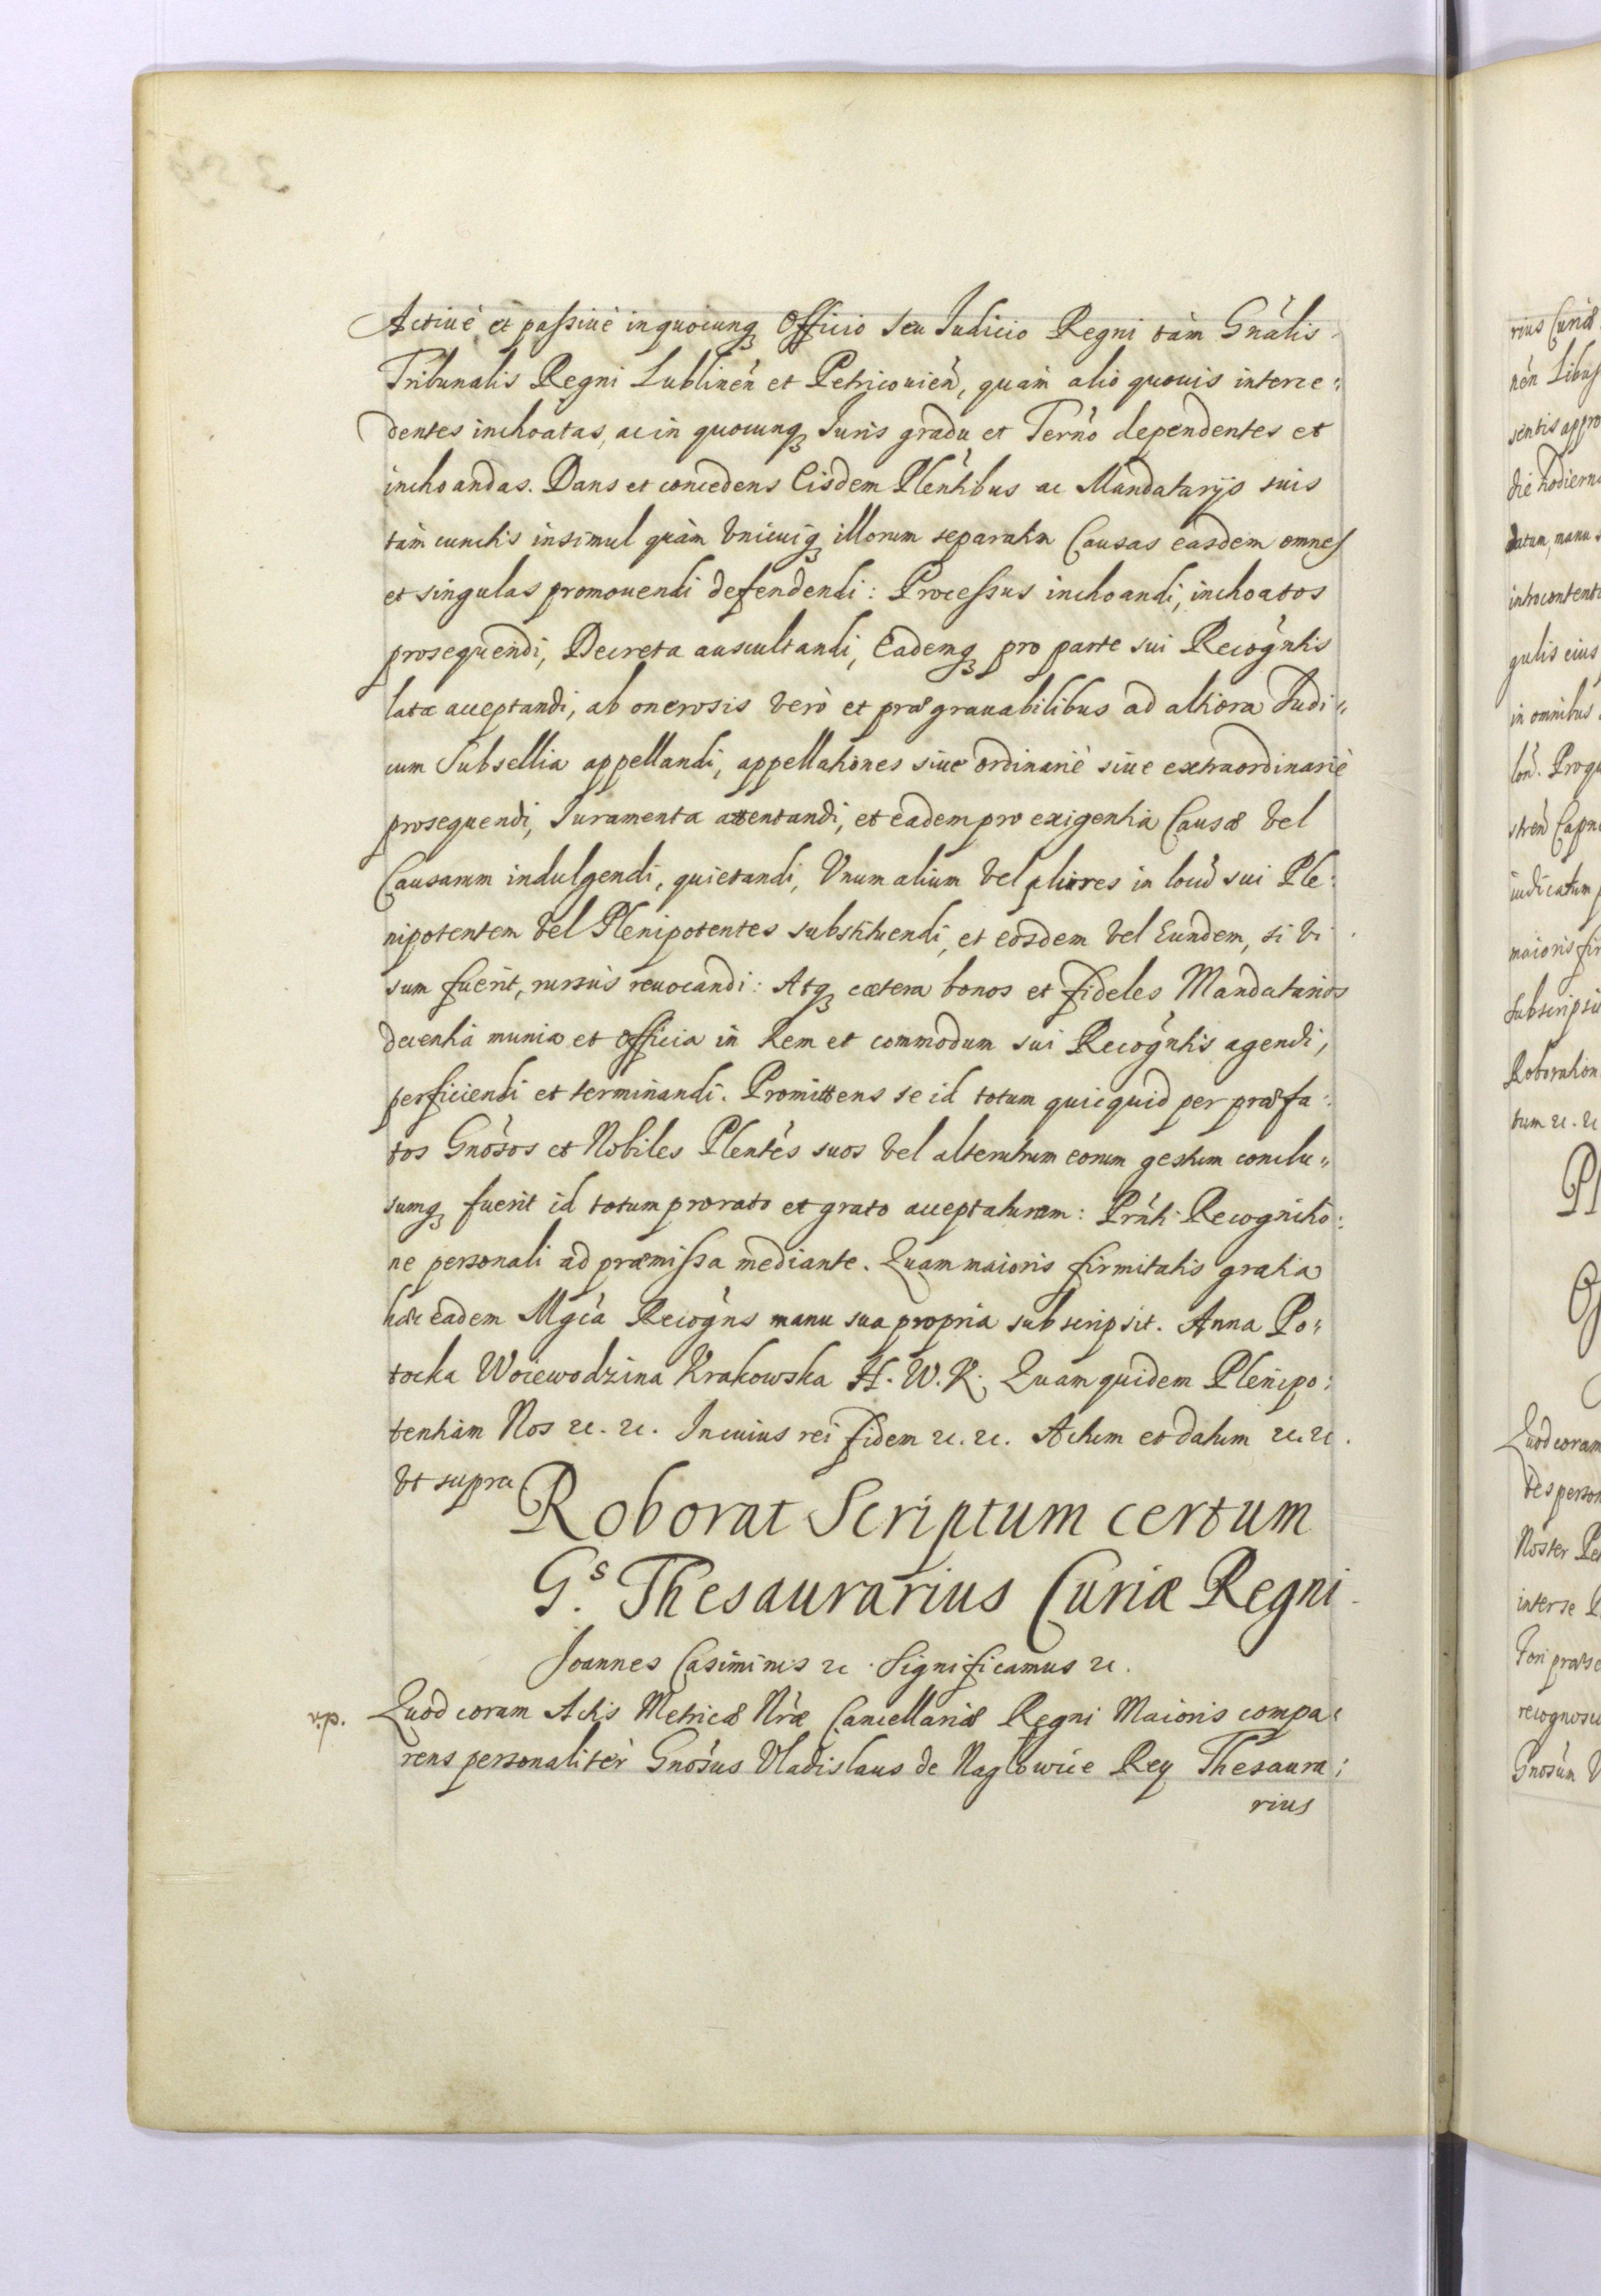 Actiué et passiué in quocunq Officio seu Iudicio Regni tám Gnális
Tribunalis Regni Lublinen̄ et Petricouien̄, quám alio quouis interce:
dentes inchoatas, ac in quocunq Iuris gradu et Termo dependentes et
inchoandas. Dans et concedens Eisdem Plentibus ac Mandatarijs suis
tám cunctis insimul quám Vnicuiq illorum separatim Causas easdem omnes
et singulas promouendi defendendi: Processus inchoandi, inchoatos
prosequendi, Decreta auscultandi, Eademq pro parte sui Recogntis
lata acceptandi, ab onerosis veró et prægrauabilibus ad altiora Iudi:
cum Subsellia appellandi, appellationes siue ordinarié siue extraordinarié
prosequendi, Iuramenta attentandi, et eadem pro exigentia Causæ vel
Causarum indulgendi, quietandi, Vnum alium vel plures in locū sui Ple:
nipotentem vel Plenipotentes substituendi, et eosdem vel Eundem, si vi
sum fuerit, rursús reuocandi: Atq cætera bonos et fideles Mandatarios
decentia munia et Officia in Rem et commodum sui Recogntis agendi,
perficiendi et terminandi. Promittens se id totum quicquid per præfa:
tos Gnósos et Nobiles Plentés suos vel alterutrum eorum gestum conclu:
sumq fuerit id totum pro rato et grato acceptaturam: Prnti Recognitio:
ne personali ad præmissa mediante. Quam maioris firmitatis gratia
hæc eadem Mgca Recogns manu sua propria subscripsit. Anna Po:
tocka Woiewodzina Krakowska H. W. K. Quam quidem Plenipo:
tentiam Nos &c. &c. In cuius rei fidem &c. &c. Actum et datum &c. &c.
vt supra
Roborat Scriptum certum
G.s Thesaurarius Curiæ Regni
Joannes Casimirus &c. Significamus &c.
Quod coram Actis Metricæ Nræ Cancellariæ Regni Maioris compa:
rens personalitér Gnósus Vladislaus de Naglowice Rey Thesaura:
rius